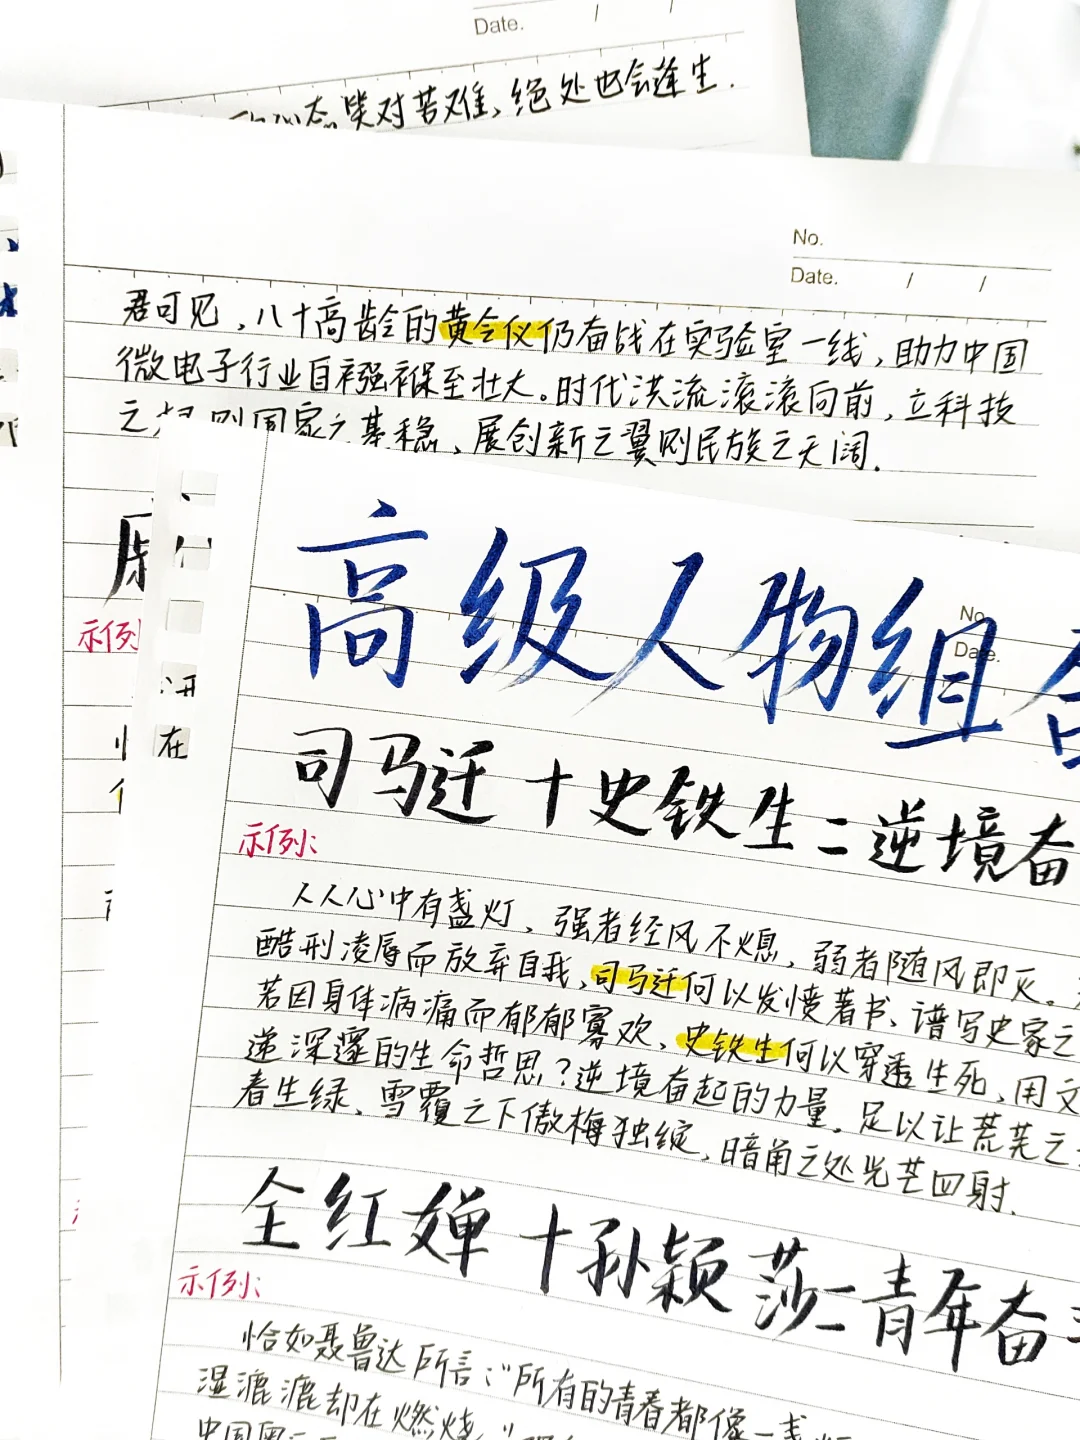 Date. / /
笑对苦难，绝处也会逢生.
No.
Date. / /
君可见，八十高龄的黄令仪仍奋战在实验室一线，助力中国
微电子行业自襁褓至壮大。时代洪流滚滚向前，立科技
之 则国家之基稳，展创新之翼则民族之天阔.
示例
在
高级人物组合
No.
Date.
司马迁+史铁生=逆境奋
示例:
人人心中有盏灯，强者经风不熄，弱者随风即灭.
酷刑凌辱而放弃自我，司马迁何以发愤著书、谱写史家之
若因身体病痛而郁郁寡欢，史铁生何以穿透生死，用文
递深邃的生命哲思?逆境奋起的力量，足以让荒芜之
春生绿，雪覆之下傲梅独绽，暗角之处光芒四射.
全红婵+孙颖莎=青年奋
示例:
恰如聂鲁达所言:"所有的青春都像一
湿漉漉却在燃烧"
中国奥